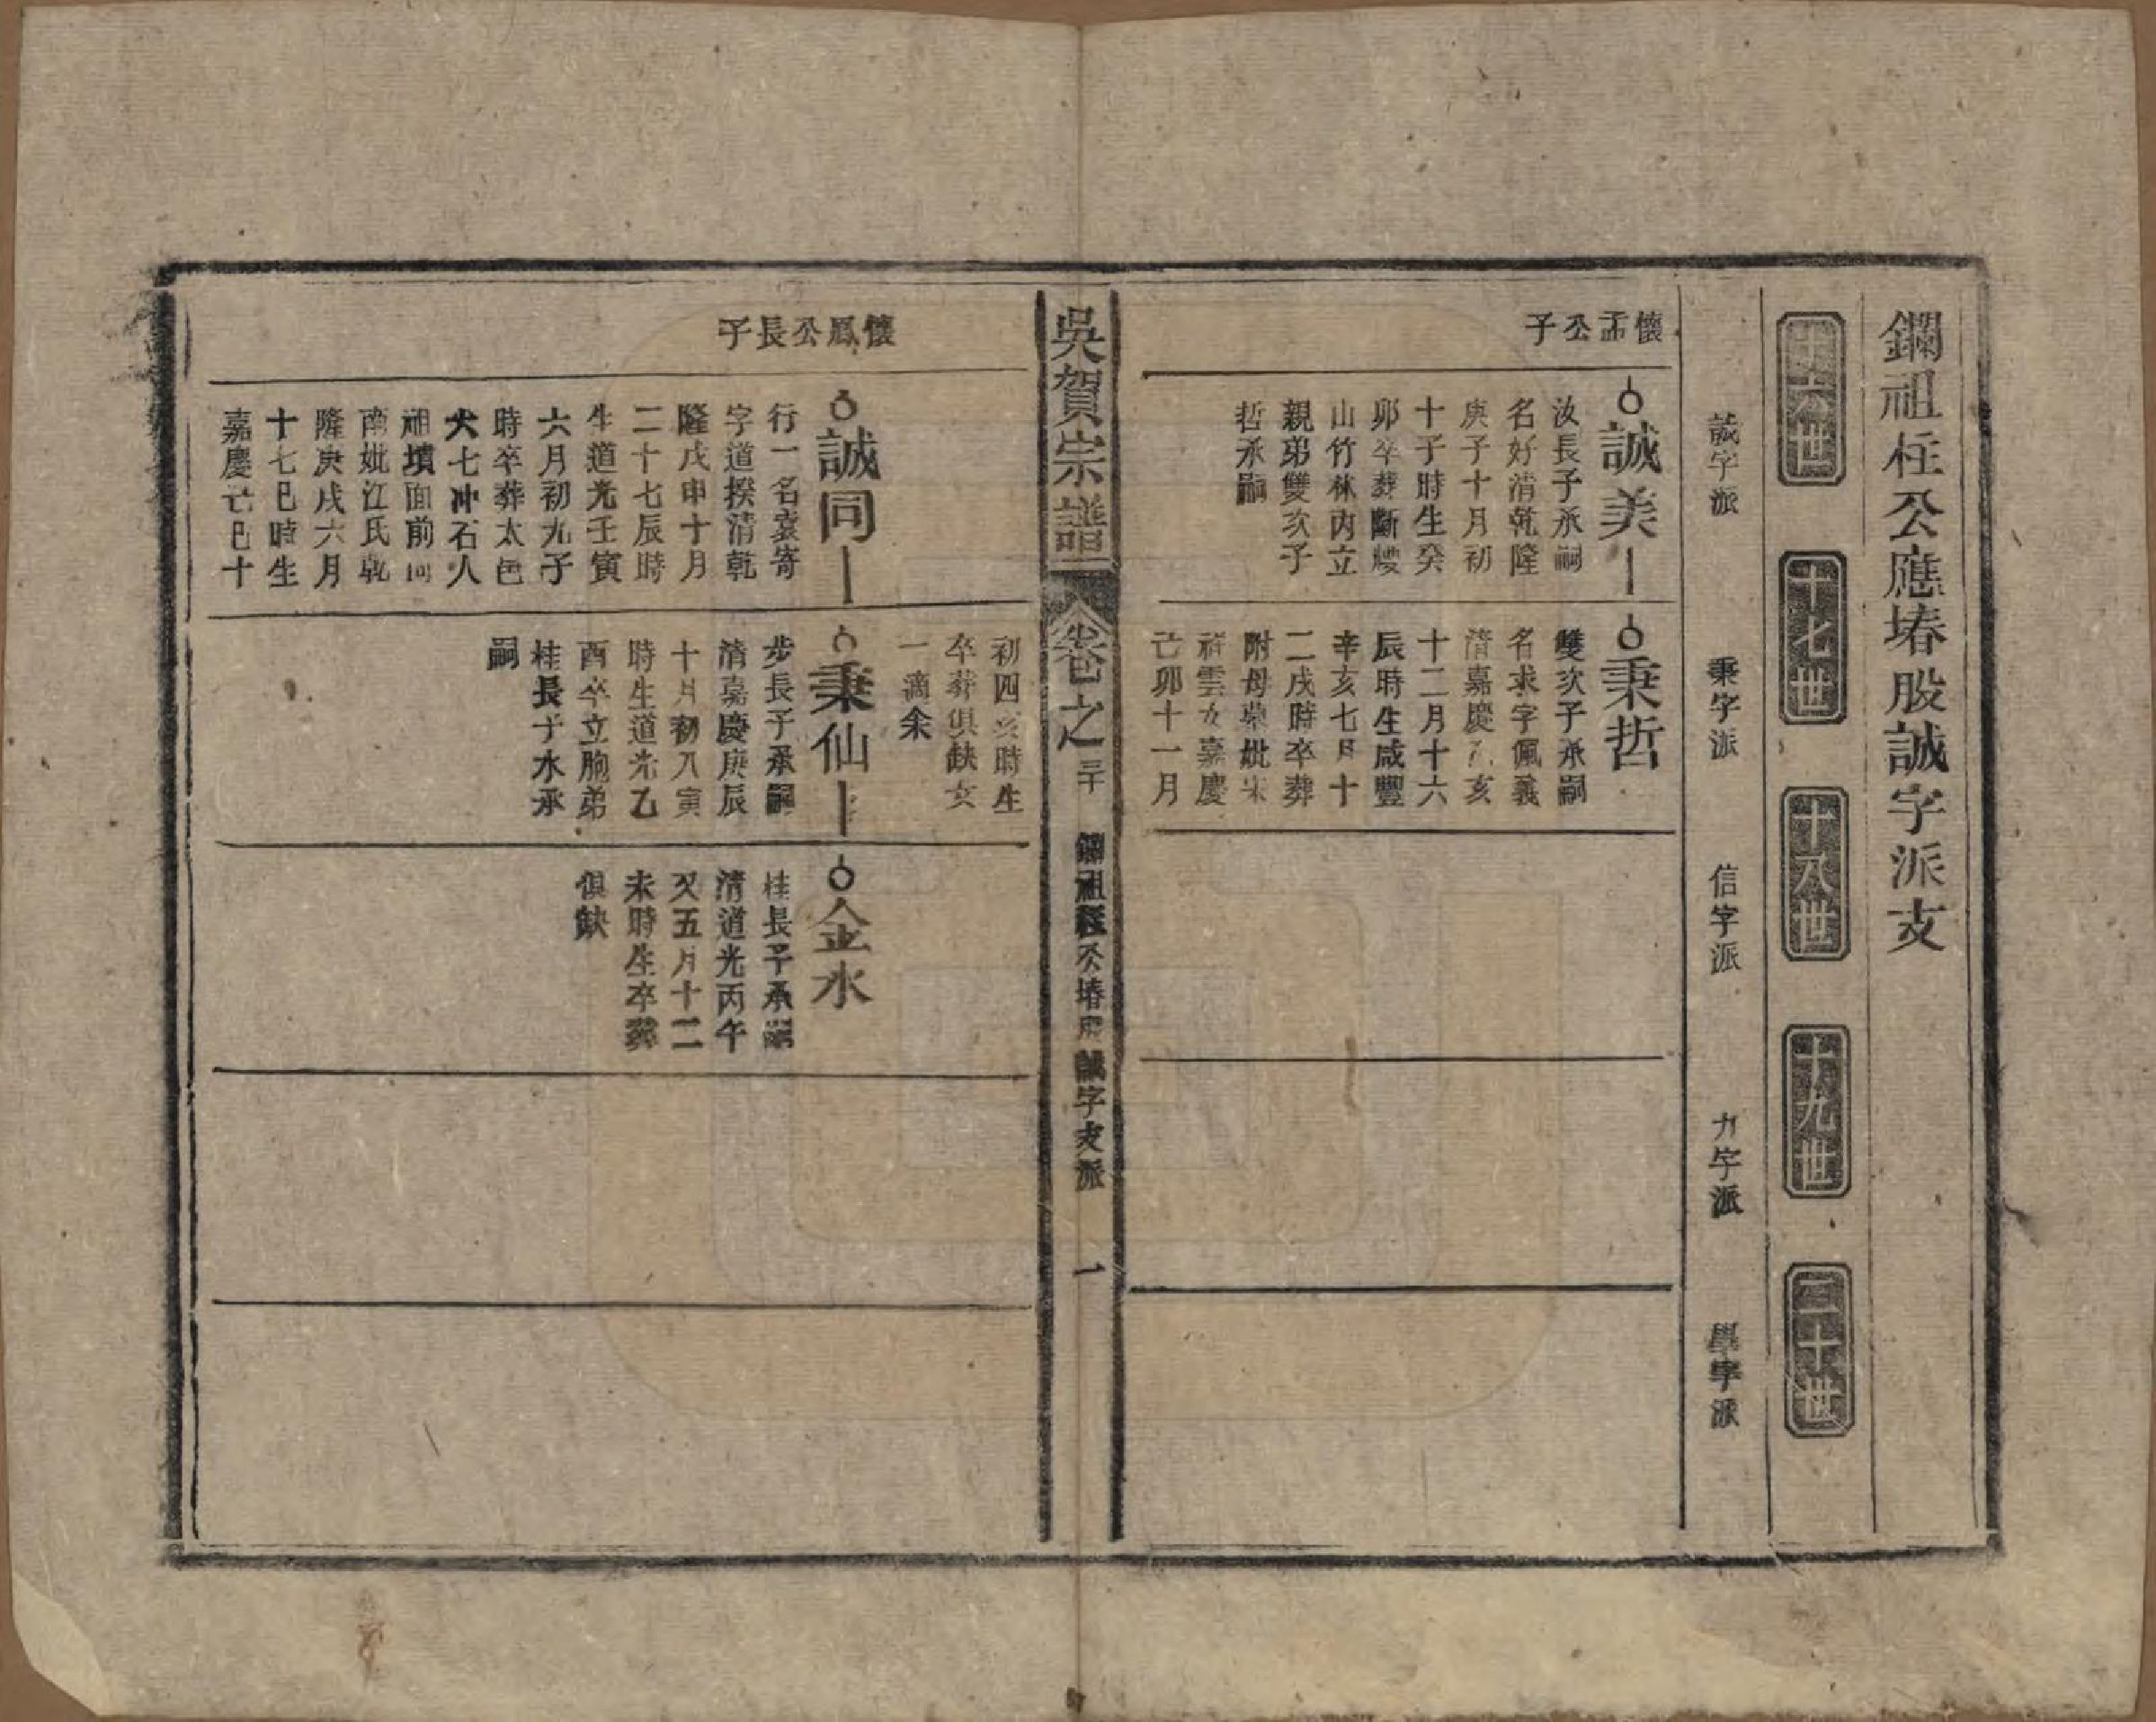 鑭祖柱公應堾股誠字派支
十六世
十七世
十八世
十九世
二十世
誠字派
秉字派
信字派
力字派
學字派
懷孟公子
誠美
汝長子承嗣
名好清乾隆
庚子十月初
十子時生癸
卯卒葬斷
山竹林內立
親弟雙次子
哲承嗣
秉哲
雙次子承嗣
名求字佩義
清嘉慶乙亥
十二月十六
辰時生咸豐
辛亥七月十
二戌時卒葬
附母塋妣宋
祥雲女嘉慶
己卯十一月
吳賀宗譜
卷之三十
鑭祖 公堾股誠字支派
一
初四亥時生
卒葬俱缺女
一適余
懷鳳公長子
誠同
行一名袁寄
字道揆清乾
隆戊申十月
二十七辰時
生道光壬寅
六月初九子
時卒葬太邑
犬七冲石人
祖墳面前向
南妣江氏乾
隆庚戌六月
十七巳時生
嘉慶己巳十
秉仙
步長子承嗣
清嘉慶庚辰
十月初八寅
時生道光乙
酉卒立胞弟
桂長子水承
嗣
金水
桂長子承嗣
清道光丙午
又五月十二
未時生卒葬
俱缺